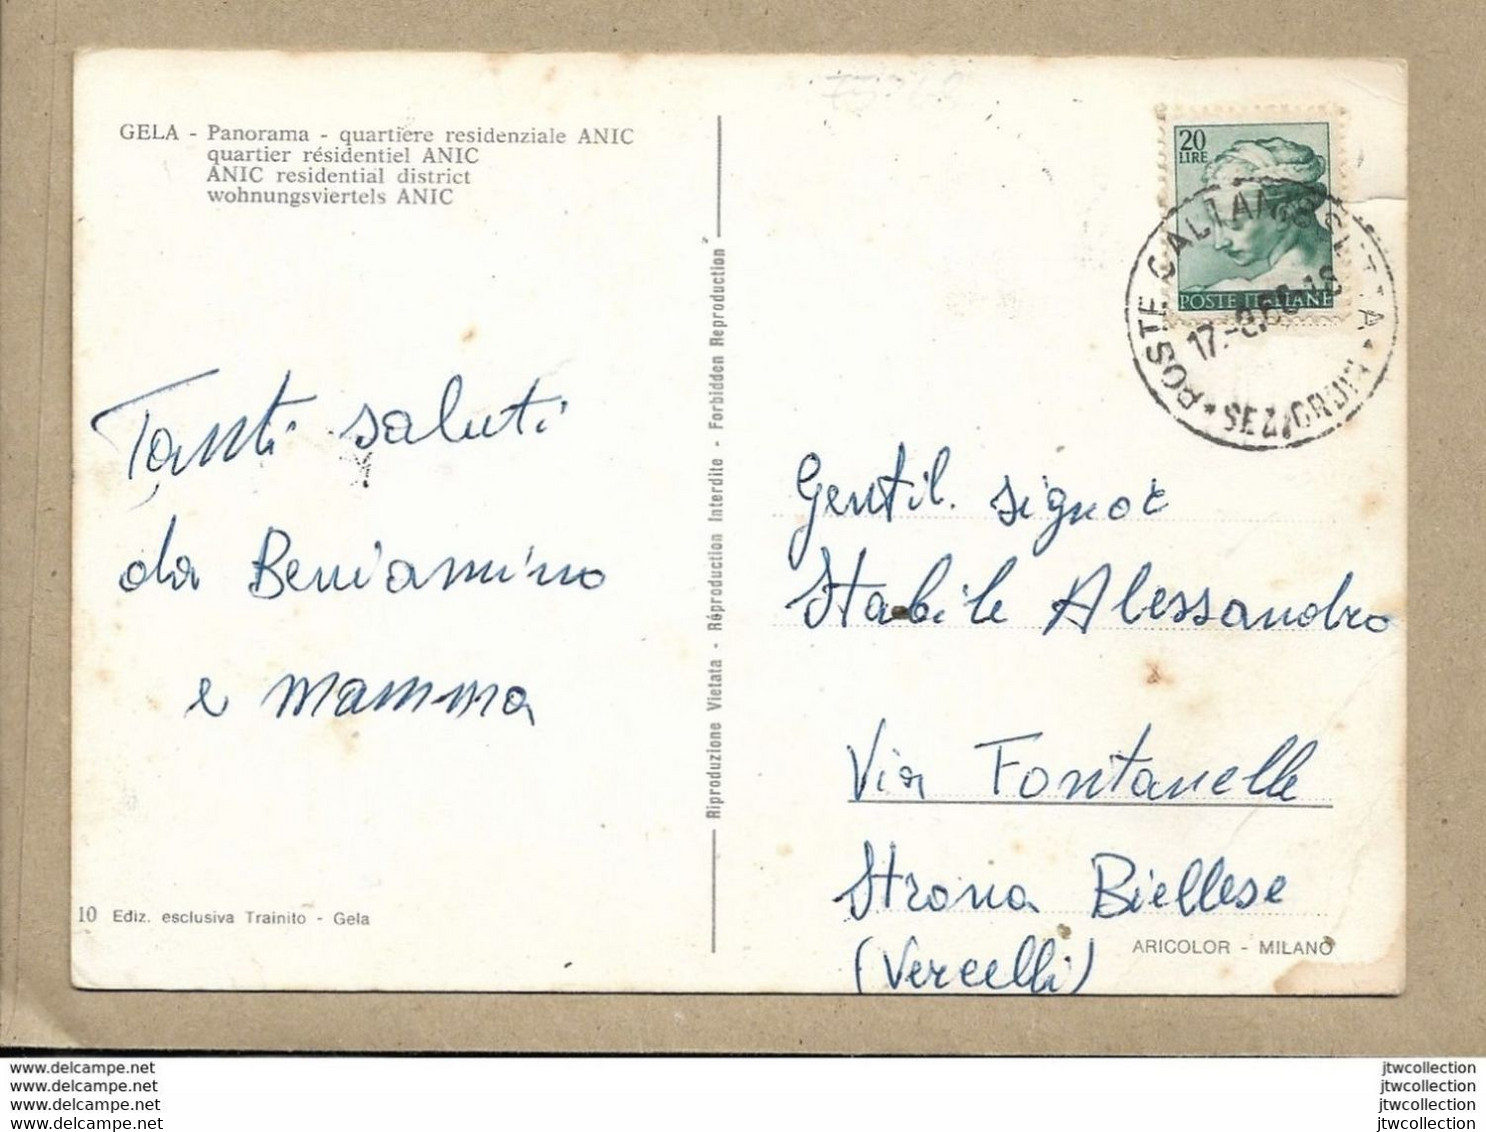 GELA - Panorama - quartiere residenziale ANIC
quartier résidentiel ANIC
ANIC residential district
wohnungsviertels ANIC
20
LIRE
POSTE ITALIANE
POSTE CALTANISSETTA
17.-8.68-18
Tanti saluti
da Beniamino
e mamma
Riproduzione Vietata - Réproduction Interdite - Forbidden Reproduction
Gentil. Signor
Stabile Alessandro
Via Fontanelle
Strona Biellese
(Vercelli)
10 Ediz. esclusiva Trainito - Gela
ARICOLOR - MILANO
www.delcampe.net
www.delcampe.net
www.delcampe.net
www.delcampe.net
jtwcollection
jtwcollection
jtwcollection
jtwcollection